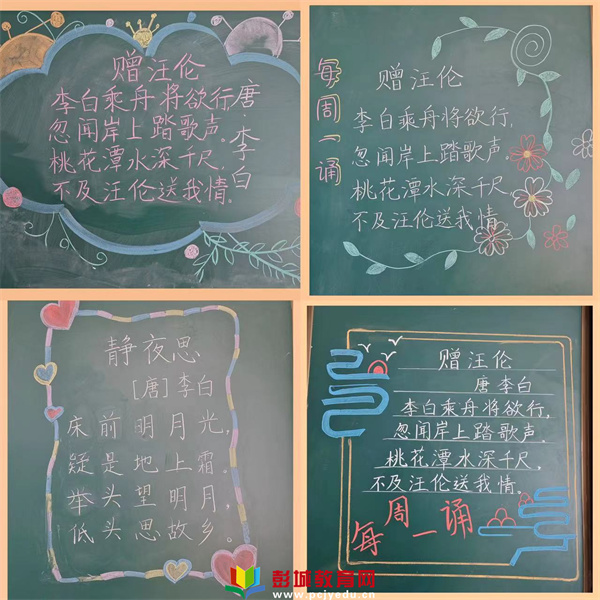 赠汪伦
唐·李白
李白乘舟将欲行,
忽闻岸上踏歌声。
桃花潭水深千尺,
不及汪伦送我情。
每周一诵
赠汪伦
李白乘舟将欲行,
忽闻岸上踏歌声,
桃花潭水深千尺,
不及汪伦送我情。
静夜思
[唐]李白
床前明月光,
疑是地上霜。
举头望明月,
低头思故乡。
赠汪伦
唐李白
李白乘舟将欲行,
忽闻岸上踏歌声。
桃花潭水深千尺,
不及汪伦送我情。
每周一诵
彭城教育网
www.pcjyedu.cn